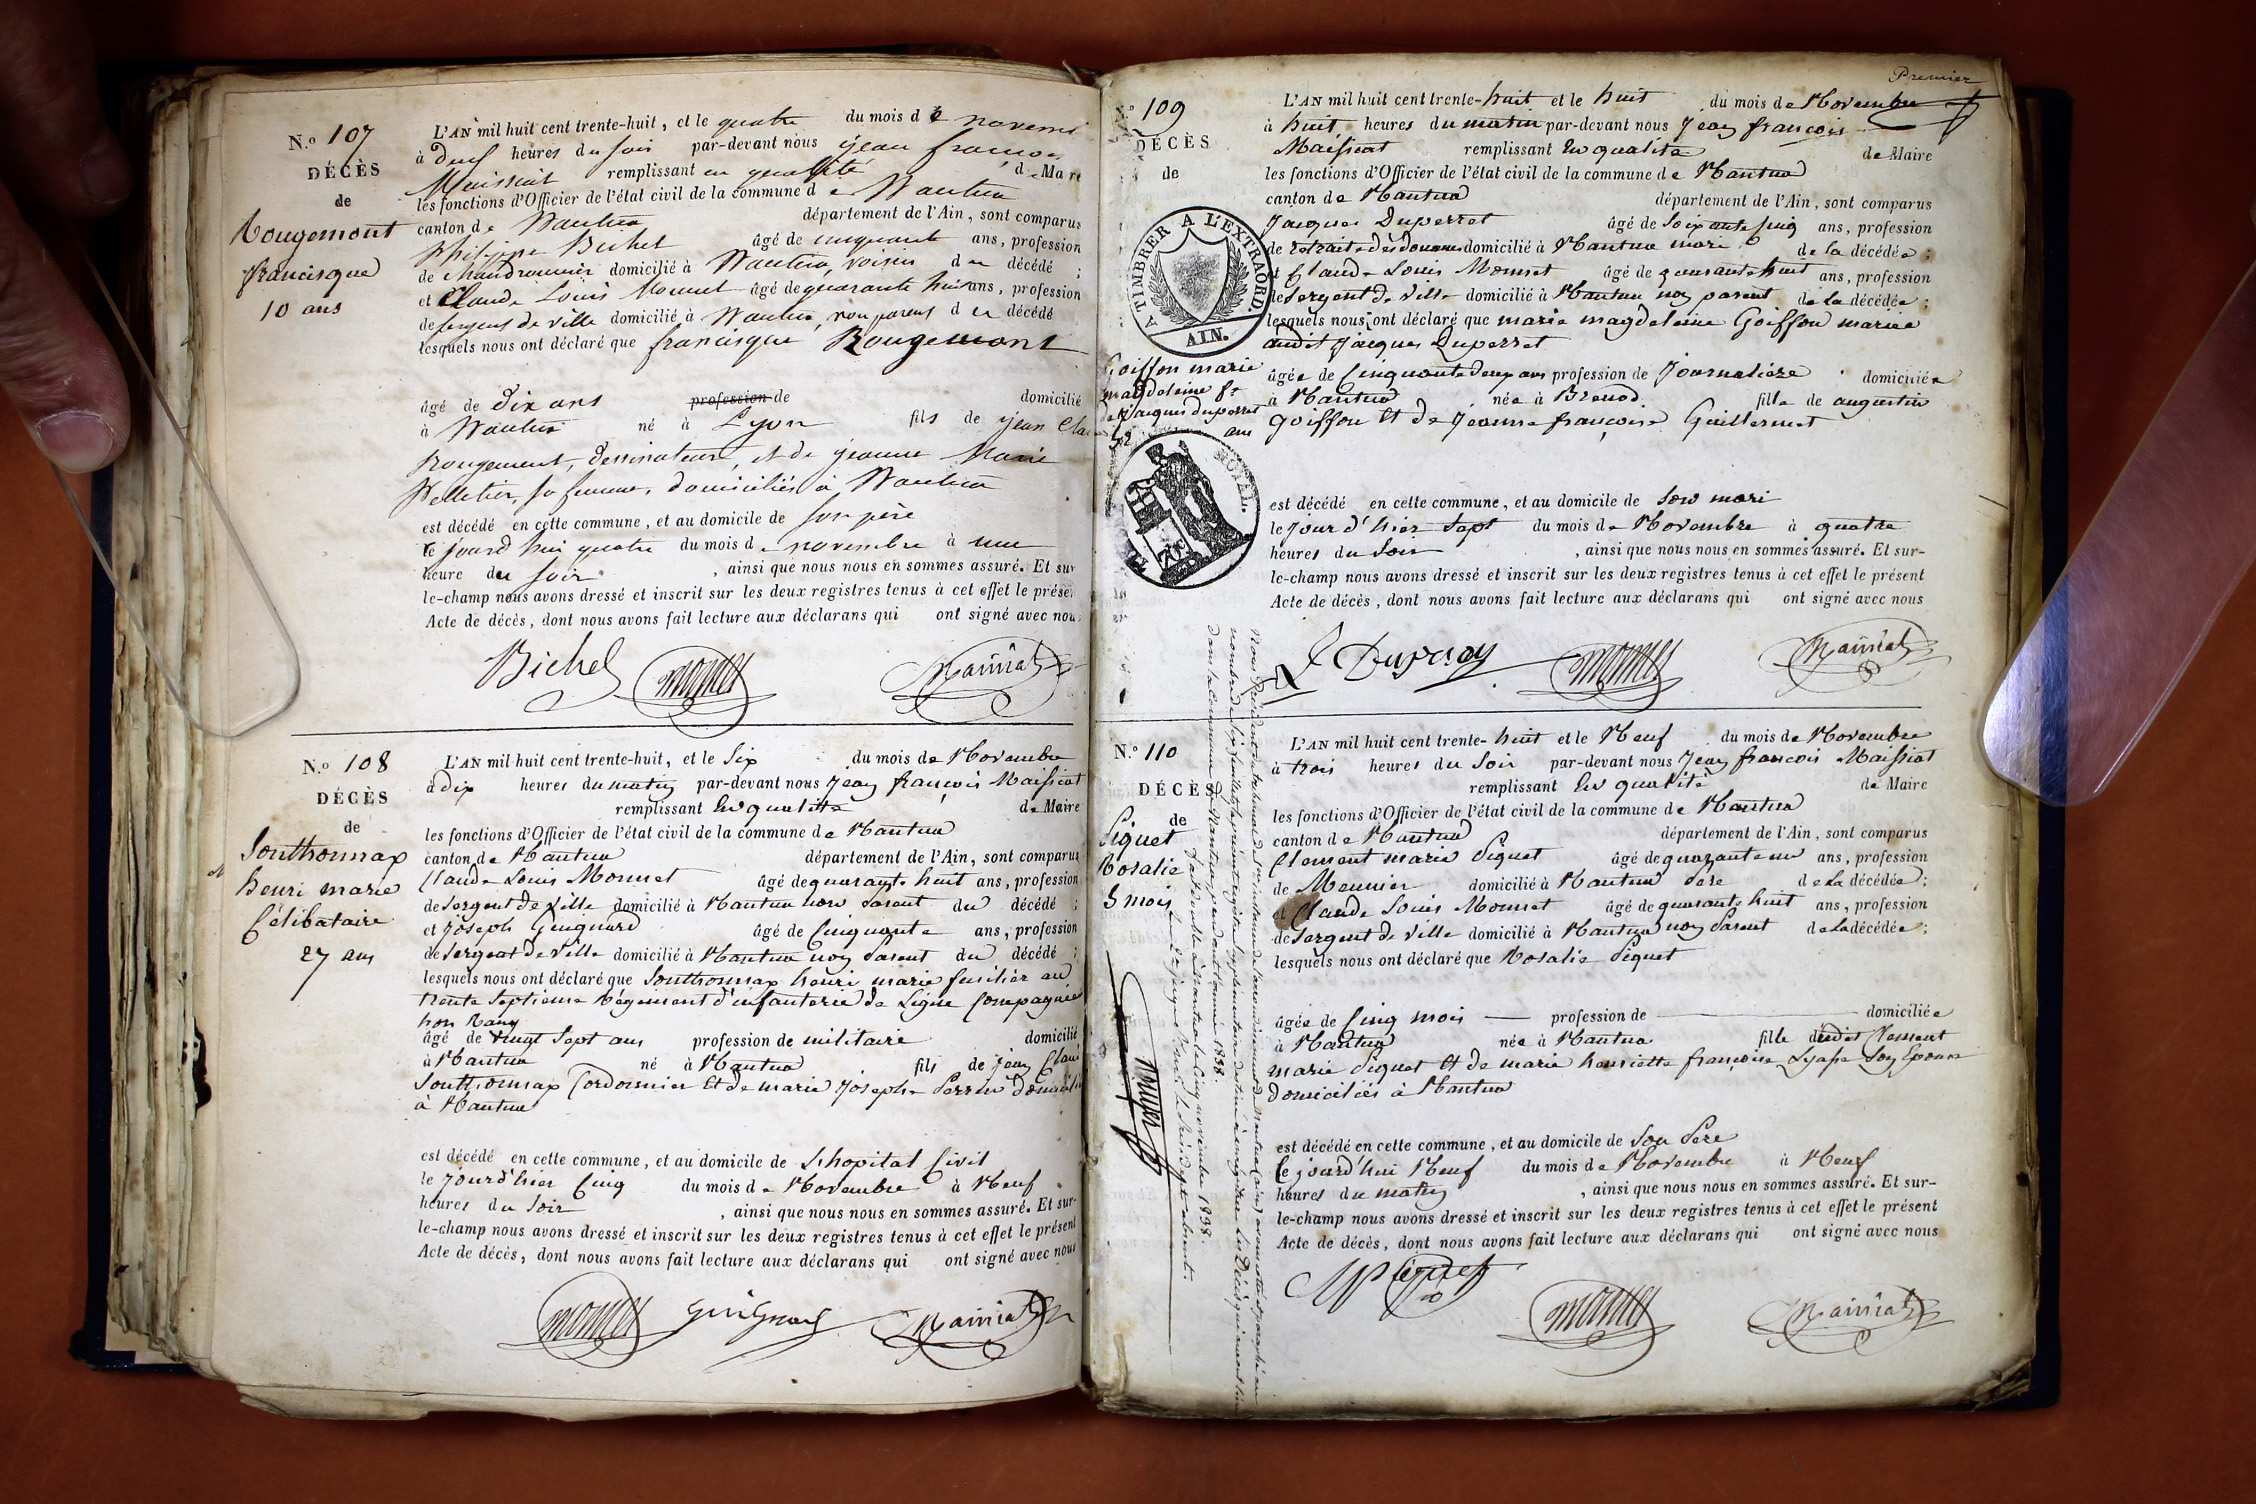 N.º 107
DÉCÈS
de
Rougemont
francisque
10 ans
L'AN mil huit cent trente-huit, et le quatre du mois de novem
à deux heures du soir par-devant nous jean francois
Maissiat remplissant en qualité de Maire
les fonctions d'Officier de l'état civil de la commune de Nantua
canton de Nantua département de l'Ain, sont comparus
Philippe Bichet âgé de cinquante ans, profession
de chaudronnier domicilié à Nantua, voisin du décédé ;
et Claude Louis Monnet âgé de quarante huit ans, profession
de sergent de ville domicilié à Nantua, non parent du décédé
lesquels nous ont déclaré que francisque Rougemont
âgé de dix ans profession de domicilié
à Nantua né à Lyon fils de jean Cla
Rougemont, dessinateur, et de jeanne Marie
Pelletier, sa femme, domiciliés à Nantua
est décédé en cette commune, et au domicile de son père
ce jourd'hui quatre du mois de novembre à une
heure du soir, ainsi que nous nous en sommes assuré. Et sur
le-champ nous avons dressé et inscrit sur les deux registres tenus à cet effet le présen
Acte de décès, dont nous avons fait lecture aux déclarans qui ont signé avec nous
Bichet Monnet Maissiat
N.º 108
DÉCÈS
de
Southonnax
henri marie
Célibataire
27 ans
L'AN mil huit cent trente-huit, et le Six du mois de Novembre
à dix heures du matin par-devant nous Jean françois Maissiat
remplissant En qualité de Maire
les fonctions d'Officier de l'état civil de la commune de Nantua
canton de Nantua département de l'Ain, sont comparus
Claude Louis Monnet âgé de quarante huit ans, profession
de Sergent de Ville domicilié à Nantua non Parent du décédé ;
et Joseph Guignard âgé de Cinquante ans, profession
de Sergent de Ville domicilié à Nantua non Parent du décédé ;
lesquels nous ont déclaré que Southonnax henri marie fusilier au
trente Septieme Régement d'infanterie de Ligne Compagnie
hors Rang
âgé de vingt Sept ans profession de militaire domicilié
à Nantua né à Nantua fils de Jean Claude
Southonnax Cordonnier Et de marie Josephe Perrin domicilié
à Nantua
est décédé en cette commune, et au domicile de L'hopital Civil
le Jour d'hier Cinq du mois de Novembre à Neuf
heures du Soir, ainsi que nous nous en sommes assuré. Et sur-
le-champ nous avons dressé et inscrit sur les deux registres tenus à cet effet le présent
Acte de décès, dont nous avons fait lecture aux déclarans qui ont signé avec nous
Monnet Guignard Maissiat
Premier
N.º 109
DÉCÈS
de
A TIMBRER A L'EXTRAORD.
AIN.
Goiffon marie
magdeleine fe
de Jacques duperret
52 ans
L'AN mil huit cent trente-huit et le huit du mois de Novembre
à huit heures du matin par-devant nous Jean françois
Maissiat remplissant En qualité de Maire
les fonctions d'Officier de l'état civil de la commune de Nantua
canton de Nantua département de l'Ain, sont comparus
Jacques Duperret âgé de Soixante Cinq ans, profession
de retraité des douanes domicilié à Nantua mari de la décédée ;
et Claude Louis Monnet âgé de quarante huit ans, profession
de Sergent de Ville domicilié à Nantua non parent de la décédée ;
lesquels nous ont déclaré que marie magdeleine Goiffon mariée
audit Jacques Duperret
âgée de Cinquante deux ans profession de Journalière domiciliée
à Nantua née à Brenod fille de augustin
Goiffon Et de Jeanne françoise Guillermet
est décédé en cette commune, et au domicile de Son mari
le Jour d'hier Sept du mois de Novembre à quatre
heures du Soir, ainsi que nous nous en sommes assuré. Et sur-
le-champ nous avons dressé et inscrit sur les deux registres tenus à cet effet le présent
Acte de décès, dont nous avons fait lecture aux déclarans qui ont signé avec nous
Monnet Maissiat
N.º 110
DÉCÈS
de
Piquet
Rosalie
5 mois
L'AN mil huit cent trente-huit et le Neuf du mois de Novembre
à trois heures du Soir par-devant nous Jean françois Maissiat
remplissant En qualité de Maire
les fonctions d'Officier de l'état civil de la commune de Nantua
canton de Nantua département de l'Ain, sont comparus
Clement marie Piquet âgé de quarante un ans, profession
de Meunier domicilié à Nantua Pere de la décédée ;
et Claude Louis Monnet âgé de quarante huit ans, profession
de Sergent de Ville domicilié à Nantua non Parent de la décédée ;
lesquels nous ont déclaré que Rosalie Piquet
âgée de Cinq mois profession de domiciliée
à Nantua née à Nantua fille dudit Clement
marie Piquet Et de marie henriette françoise Son Epouse
domiciliés à Nantua
est décédé en cette commune, et au domicile de Son Pere
Ce jourd'hui Neuf du mois de Novembre à Neuf
heures du matin, ainsi que nous nous en sommes assuré. Et sur-
le-champ nous avons dressé et inscrit sur les deux registres tenus à cet effet le présent
Acte de décès, dont nous avons fait lecture aux déclarans qui ont signé avec nous
Piquet Monnet Maissiat
Nous Président du tribunal de l'arrondissement de Nantua (Ain) avons coté et paraphé au
nombre de le présent registre supplémentaire destiné à enregistrer les Décès qui auront lieu
dans la Commune de Nantua, pendant l'année 1838.
fait à Nantua le Cinq novembre 1838